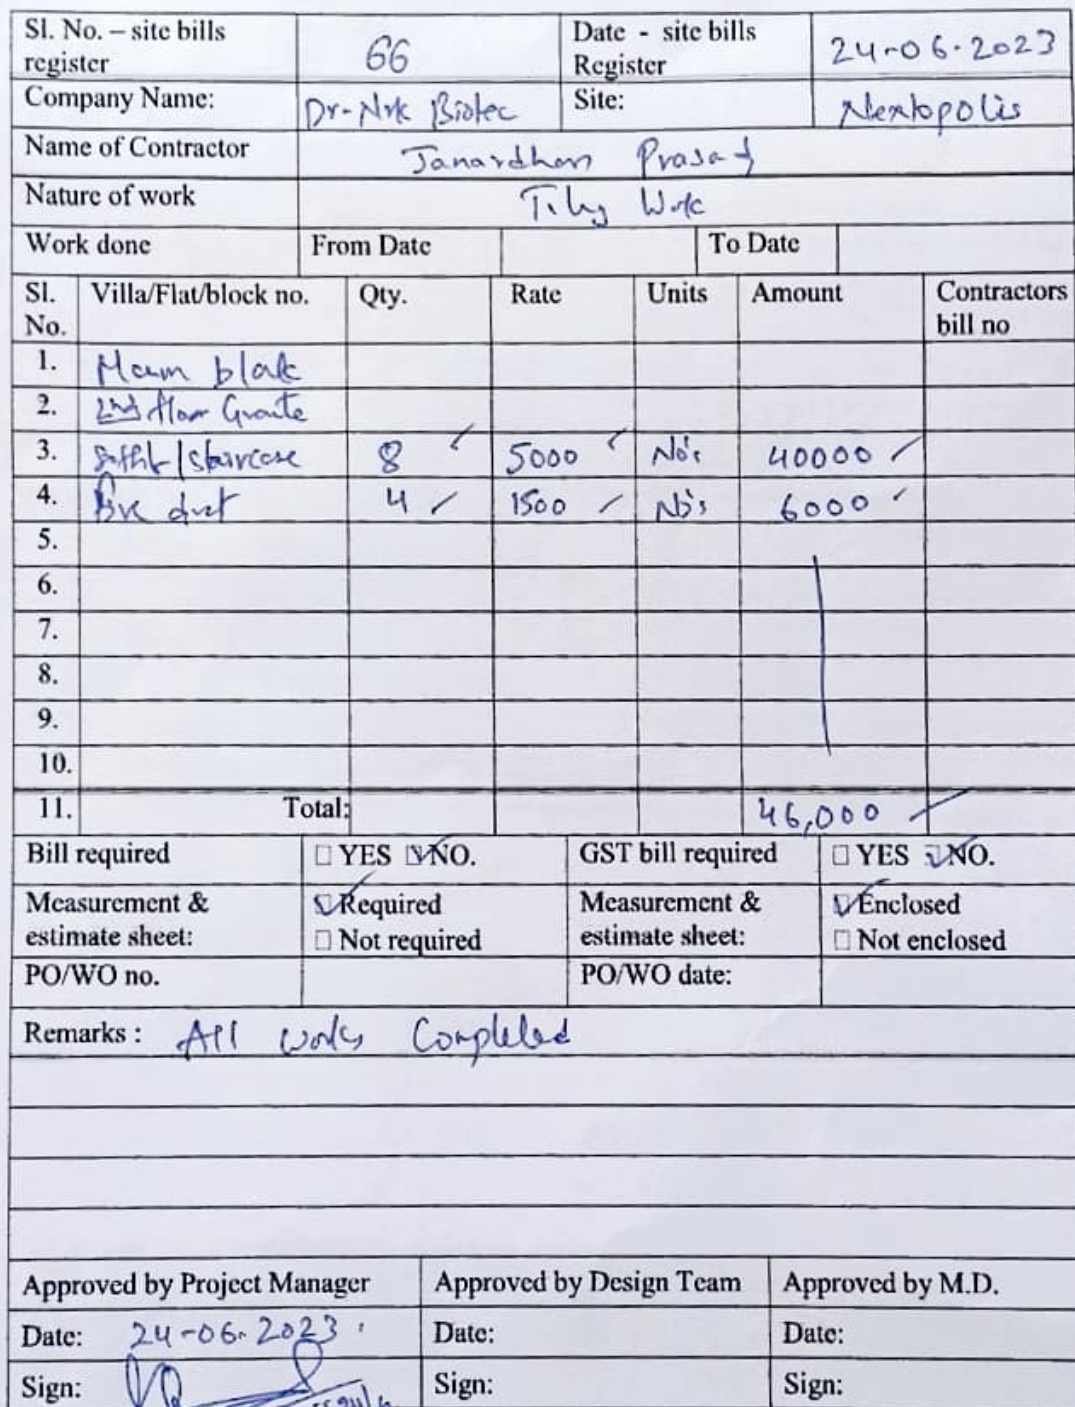 Sl. No. – site bills register 66 Date - site bills Register 24-06-2023
Company Name: Dr-Nrk Biotec Site: Nextopolis
Name of Contractor Janardhan Prasad
Nature of work Tiling Work
Work done From Date To Date
Sl. No. Villa/Flat/block no. Qty. Rate Units Amount Contractors bill no
1. Main block
2. 2nd floor Granite
3. /staircase 8 5000 No's 40000
4. duct 4 1500 No's 6000
5.
6.
7.
8.
9.
10.
11. Total: 46,000
Bill required ☐ YES ☑ NO. GST bill required ☐ YES ☑ NO.
Measurement & estimate sheet: ☑ Required ☐ Not required Measurement & estimate sheet: ☑ Enclosed ☐ Not enclosed
PO/WO no. PO/WO date:
Remarks : All works Completed
Approved by Project Manager Approved by Design Team Approved by M.D.
Date: 24-06-2023 Date: Date:
Sign: Sign: Sign: